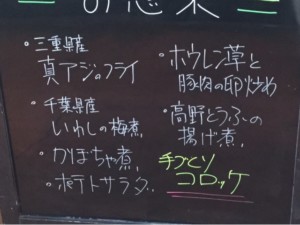 お惣菜
・三重県産
真アジのフライ
・千葉県産
いわしの梅煮
・かぼちゃ煮
・ポテトサラダ
・ホウレン草と
豚肉の卵炒め
・高野とうふの
揚げ煮
手づくり
コロッケ